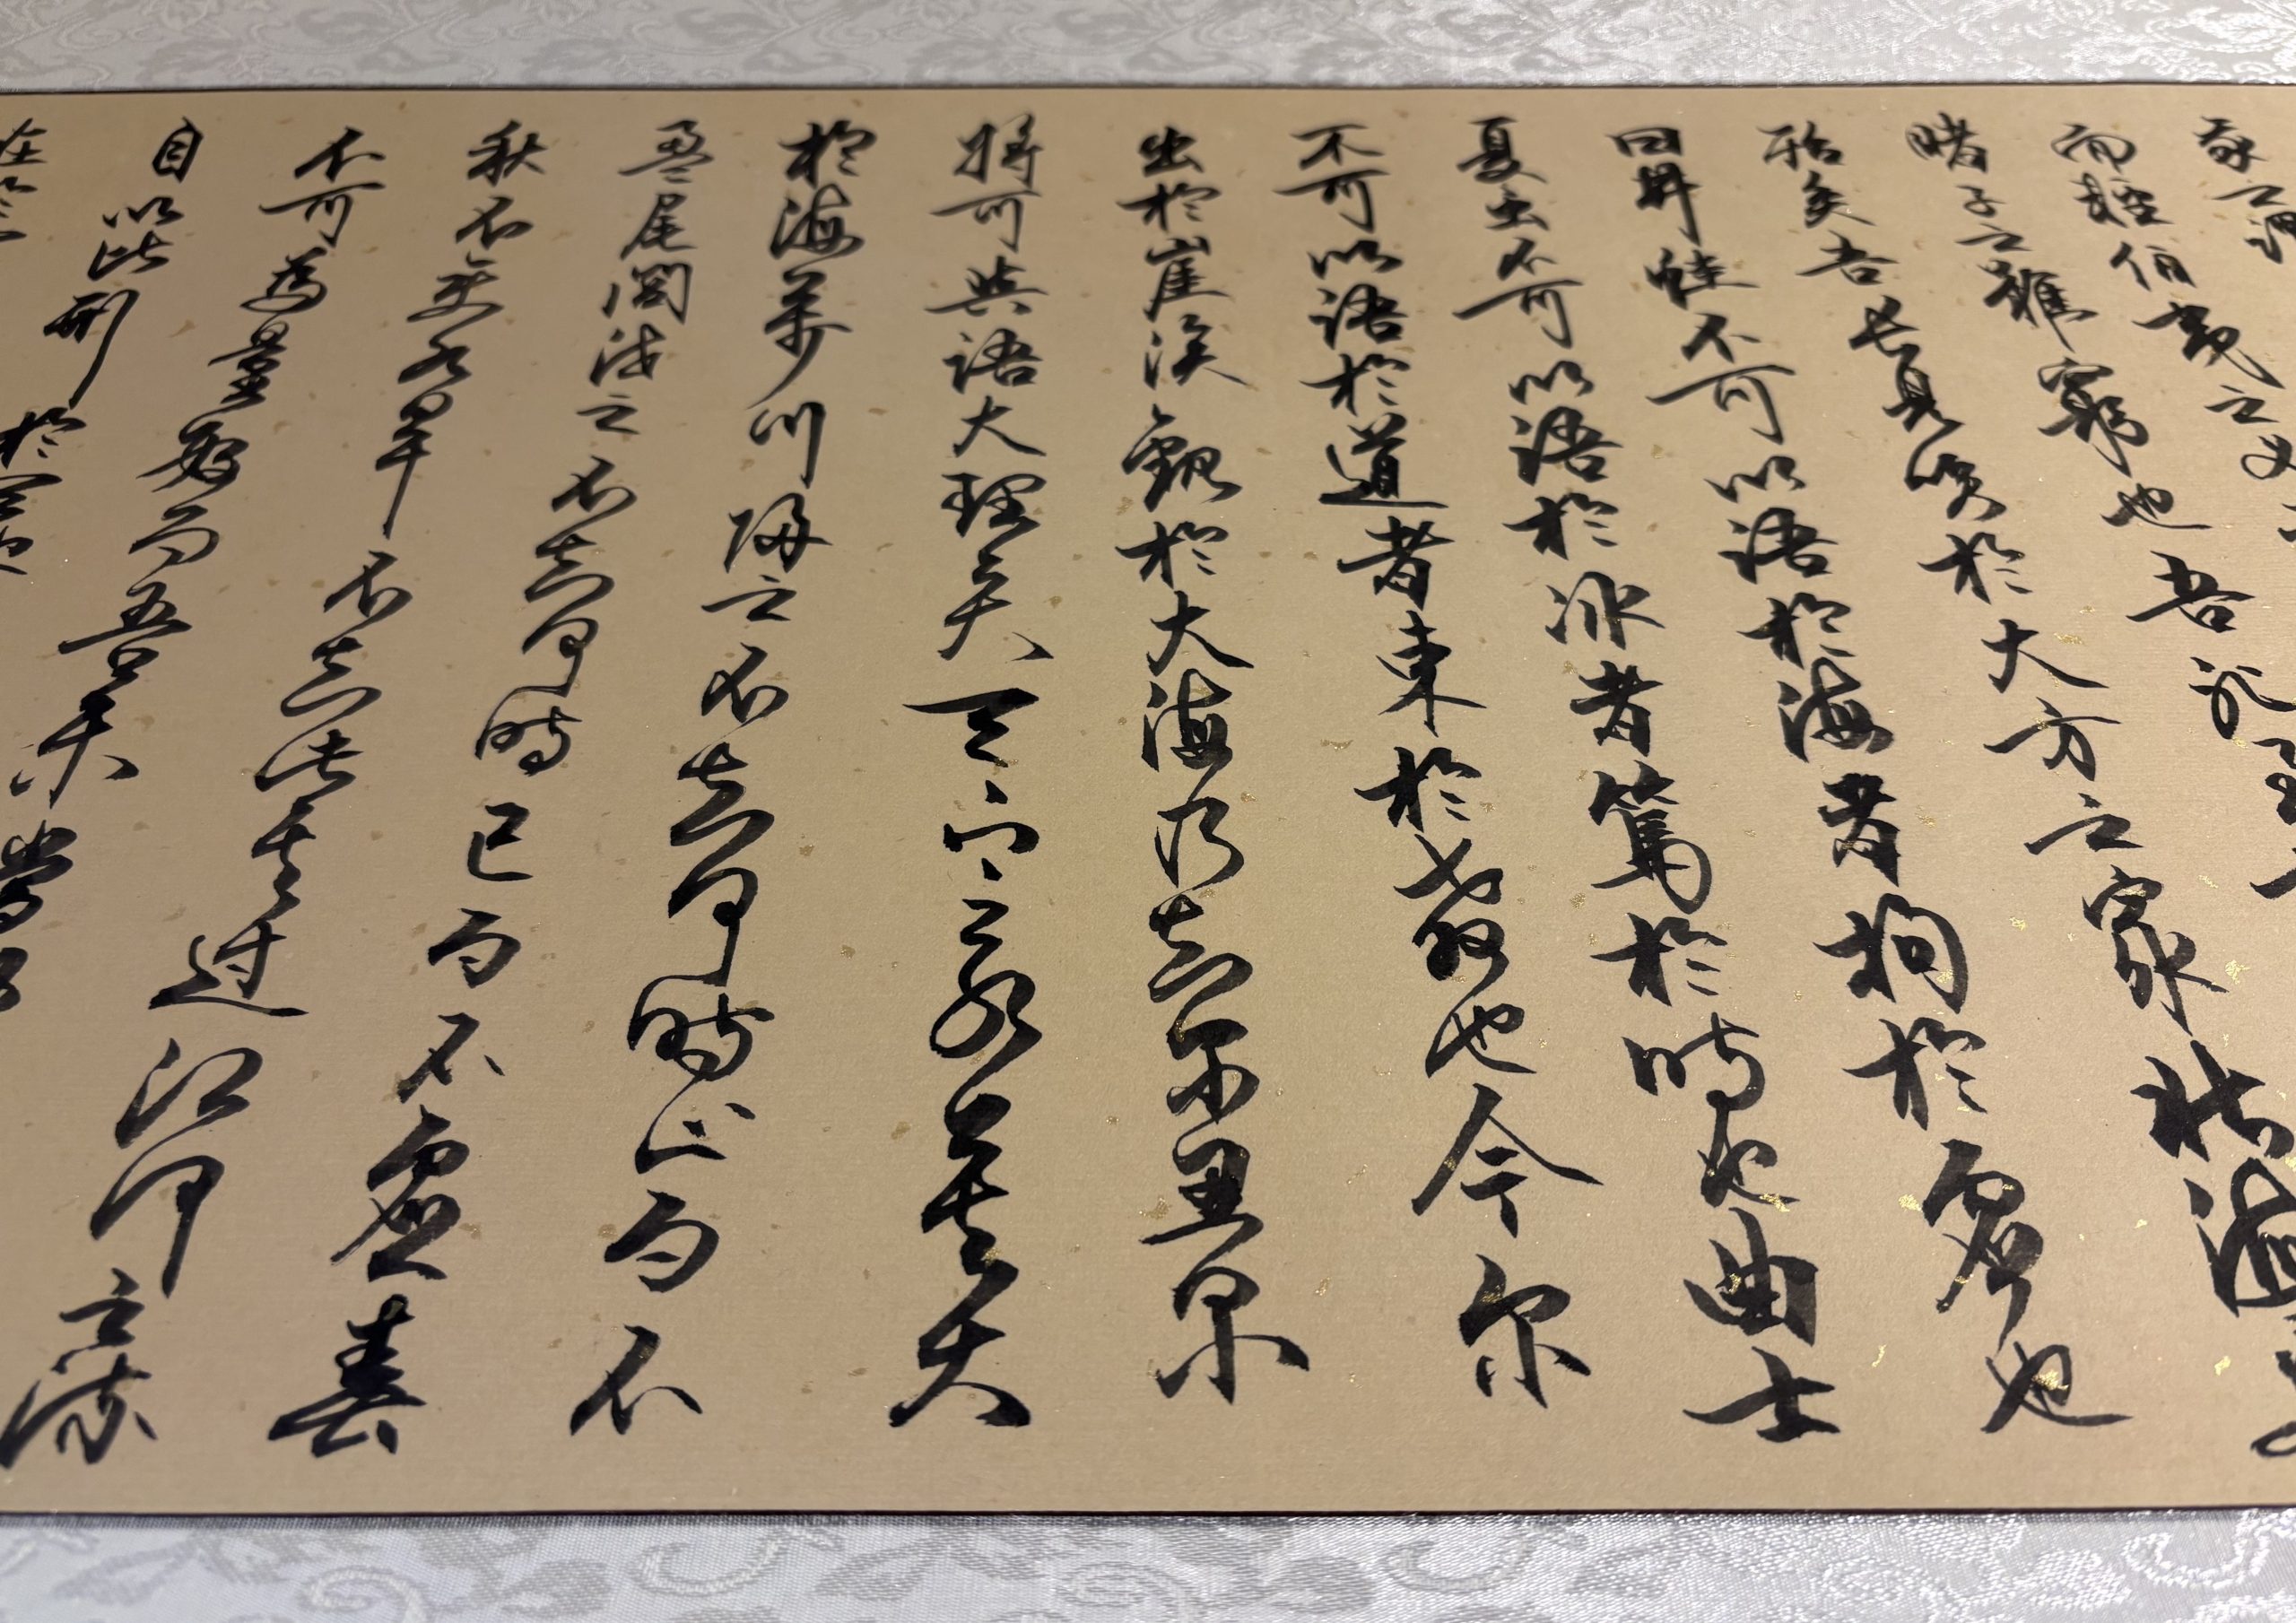 我之謂
而輕伯夷之义
睹子之難窮也吾非至
殆矣吾長見笑於大方之家北海若
曰井蛙不可以語於海者拘於虛也
夏虫不可以語於冰者篤於時也曲士
不可以語於道者束於教也今尔
出於崖涘觀於大海乃知尔丑尔
將可與語大理矣天下之水莫大
於海萬川歸之不知何時止而不
盈尾閭泄之不知何時已而不虛春
秋不变水旱不知此其过江河之流
不可為量数而吾未嘗
自以比形於
在於